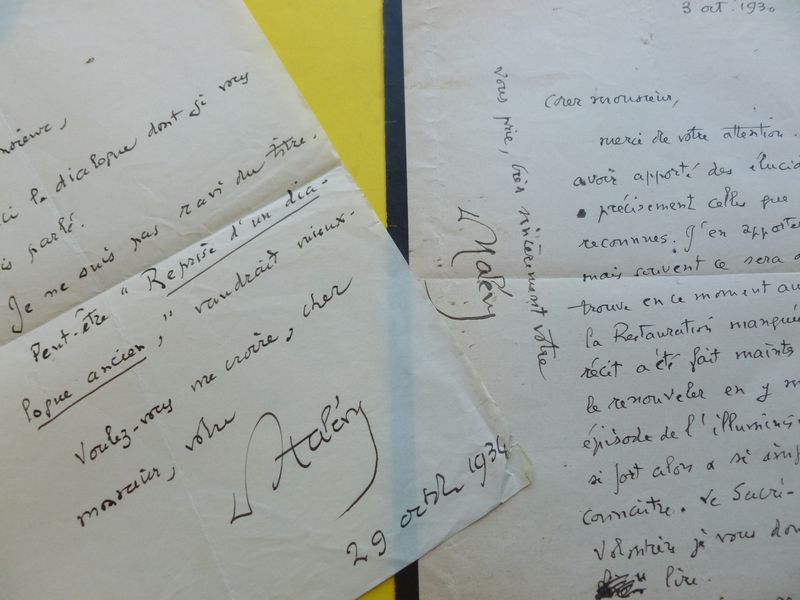 la dialogue dont je vous
parlé.
Je ne suis pas ravi du titre.
Peut-être "Reprise d'un dia-
logue ancien," vaudrait mieux.
Voulez-vous me croire, cher
monsieur, votre
D Halévy
29 octob 1934
3 oct. 1930
Cher monsieur,
merci de votre attention.
avoir apporté des élucid
précisement celles que
reconnues. J'en apporte
mais souvent ce sera
trouve en ce moment au
la Restauration manquée
récit a été fait maints
le renouveler en y m
épisode de l'illumin
si fort alors
connaitre. Le Sacré-
Volontiers je vous don
lire.
vous prie, très sincèrement votre
D Halévy